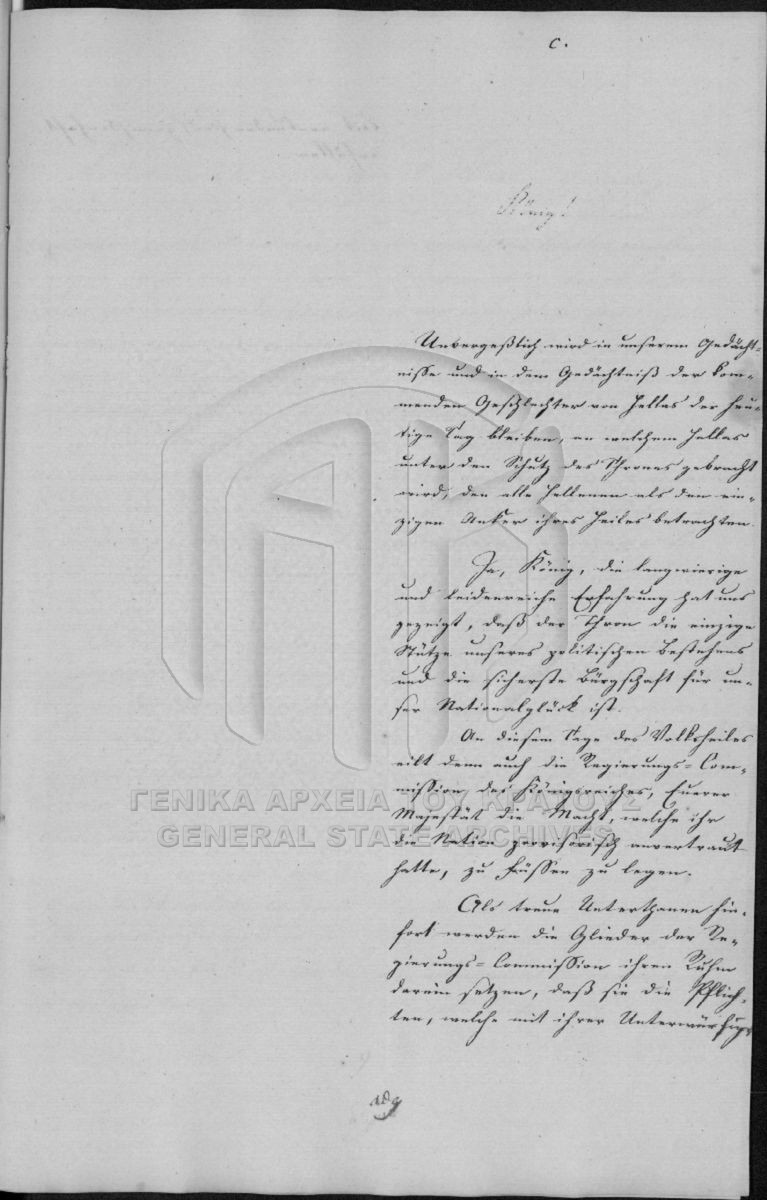 c.
König!
Unvergeßlich wird in unserem Gedächt=
nisse und in dem Gedächtniß der kom=
menden Geschlechter von Hellas der heu=
tige Tag bleiben, an welchem Hellas
unter den Schutz des Thrones gebracht
wird, den alle Hellenen als den ein=
zigen Anker ihres Heiles betrachten.
Ja, König, die langwierige
und leidenreiche Erfahrung hat uns
gezeigt, daß der Thron die einzige
Stütze unseres politischen Bestehens
und die sicherste Bürgschaft für un=
ser Nationalglück ist.
An diesem Tage des Volksheiles
eilt denn auch die Regierungs=Com=
mission des Königreiches, Euerer
Majestät die Macht, welche ihr
die Nation provisorisch anvertraut
hatte, zu Füssen zu legen.
Als treue Unterthanen hin=
fort werden die Glieder der Re=
gierungs=Commission ihren Ruhm
darein setzen, daß sie die Pflich=
ten, welche mit ihrer Unterwürfig=
ΓΕΝΙΚΑ ΑΡΧΕΙΑ ΤΟΥ ΚΡΑΤΟΥΣ
GENERAL STATE ARCHIVES